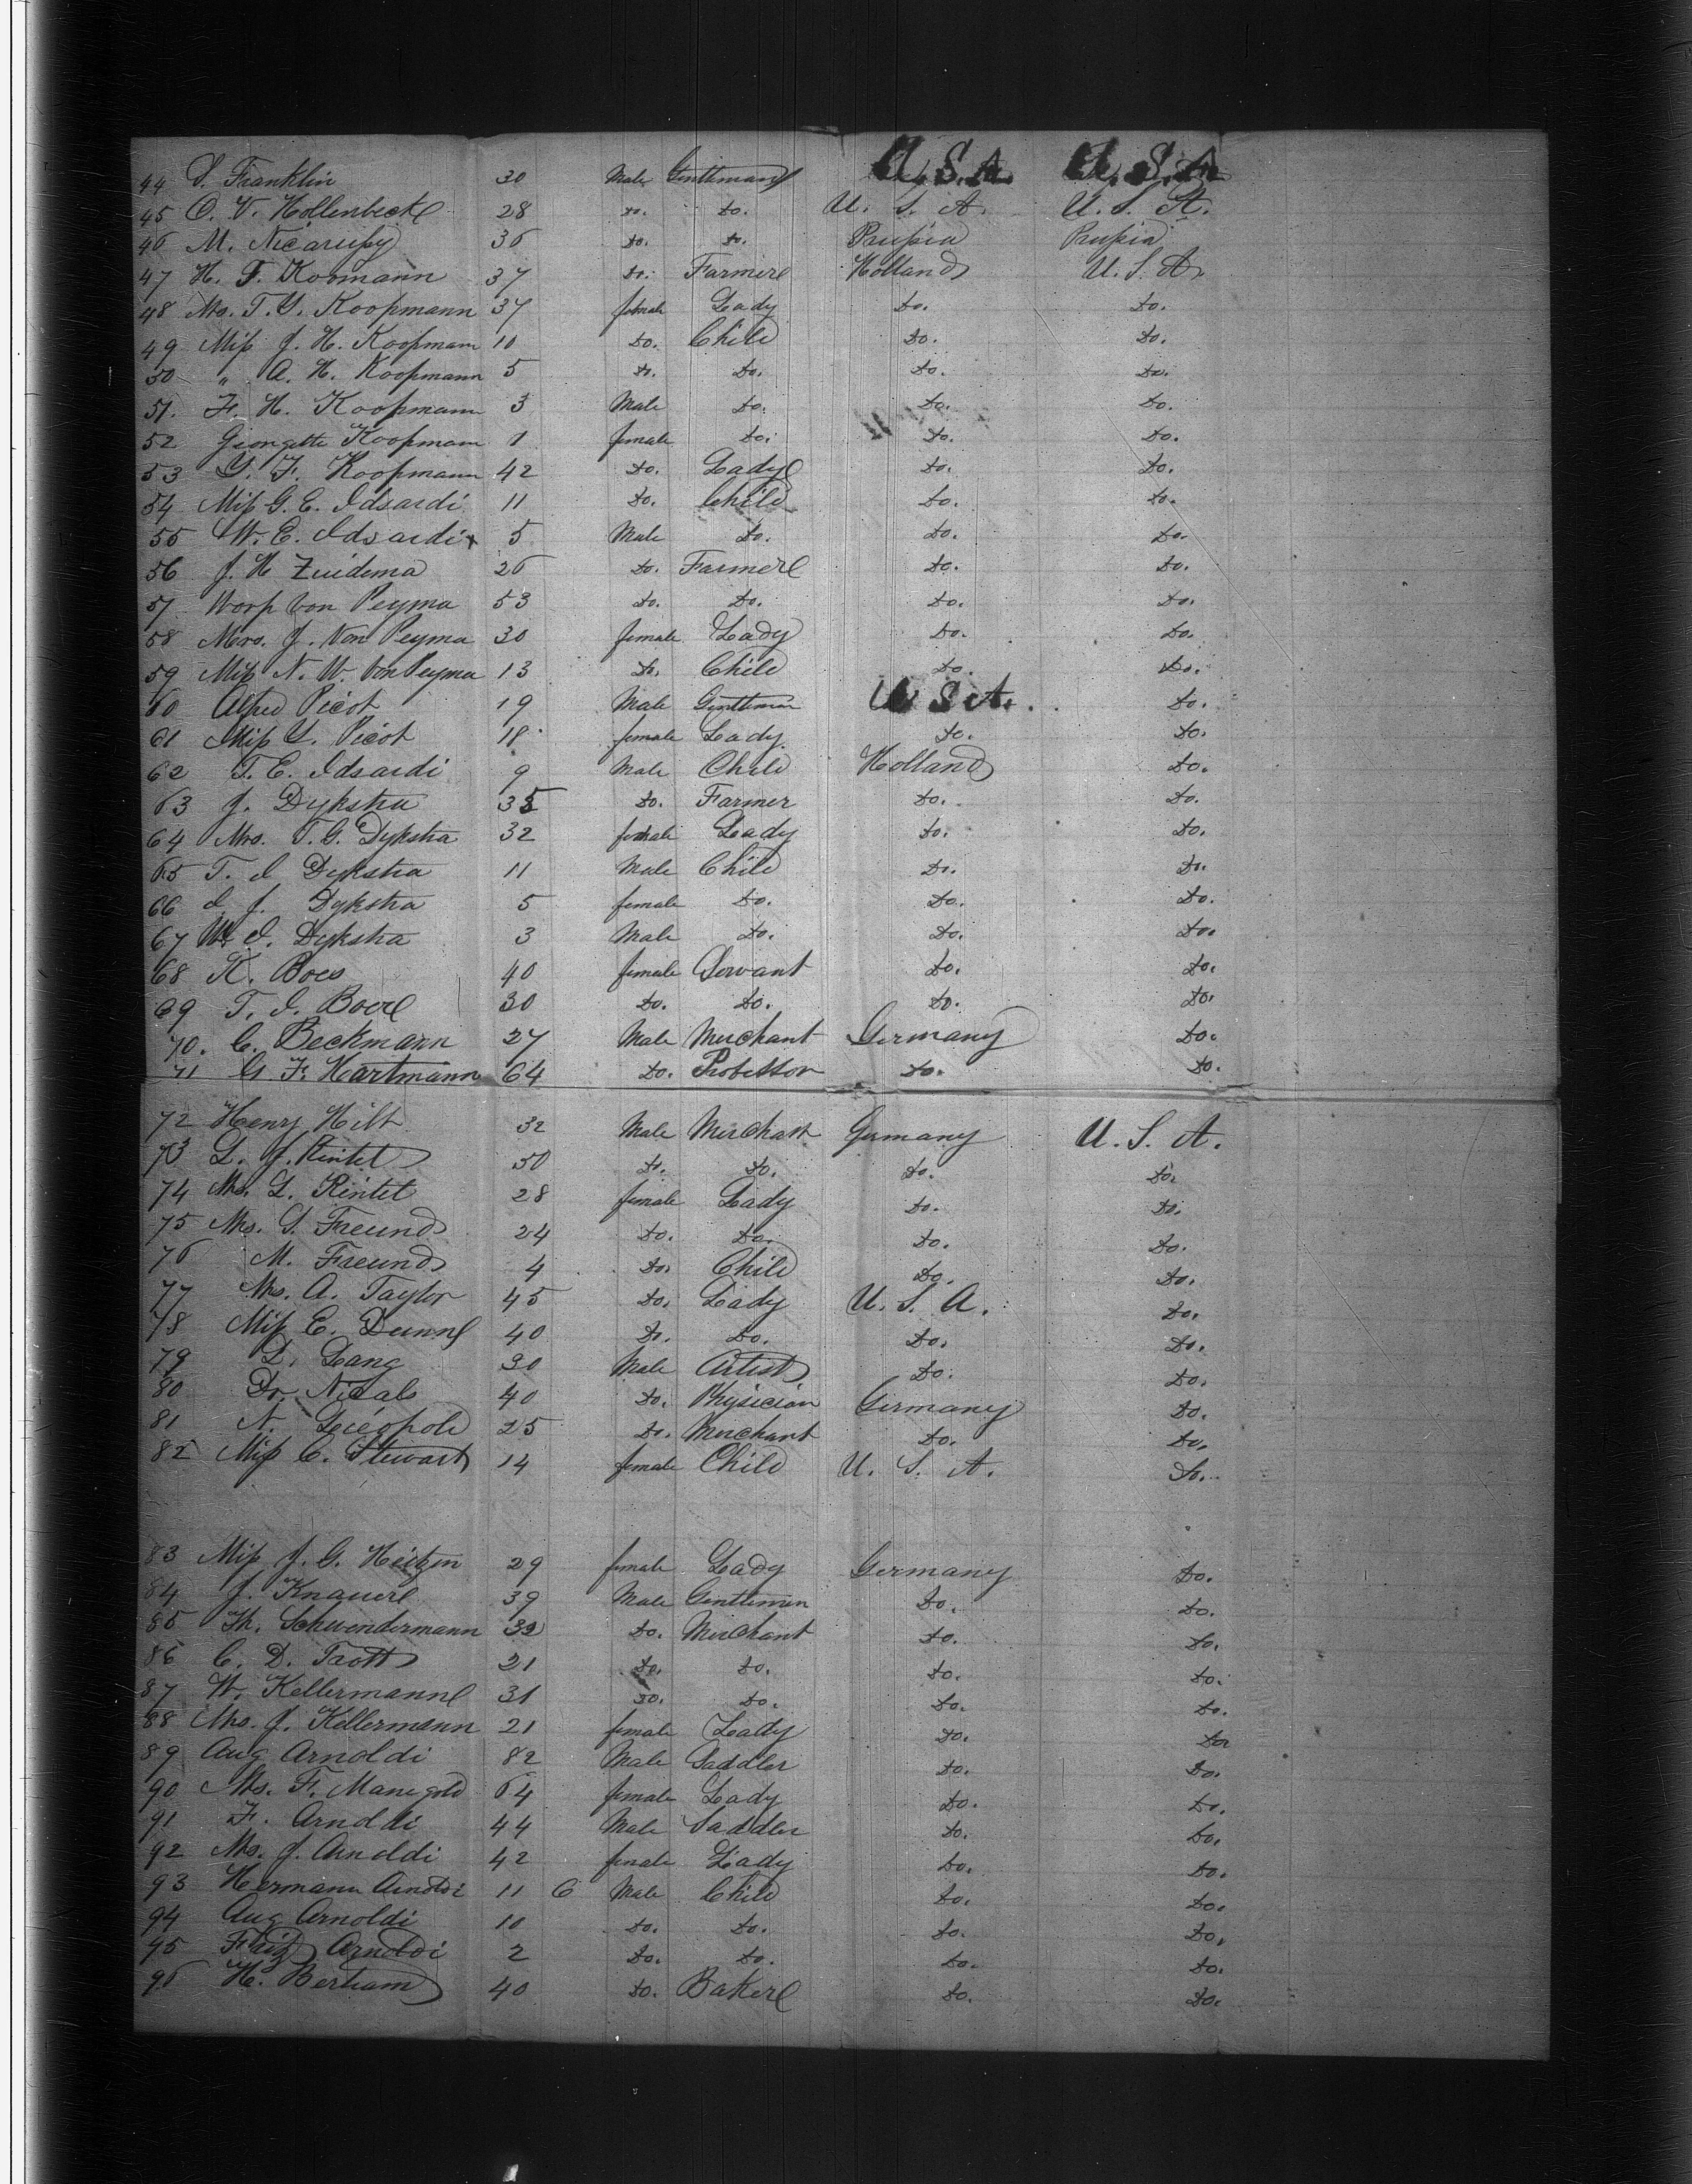 44 S. Franklin 30 Male Gentleman U.S.A. U.S.A.
45 O. V. Hollenbeck 28 do. do. U. S. A. U. S. A.
46 M. 36 do. do. Prussia Prussia
47 H. F. Koomann 37 do. Farmer Holland U. S. A.
48 Mrs. T. Y. Koopmann 37 female Lady do. do.
49 Miss J. H. Koopmann 10 do. Child do. do.
50 " A. H. Koopmann 5 do. do. do. do.
51. F. H. Koopmann 3 Male do. do. do.
52 Georgette Koopmann 1 female do. do. do.
53 Y. F. Koopmann 42 do. Lady do. do.
54 Miss G. E. Idsardi 11 do. Child do. do.
55 W. E. Idsardi 5 Male do. do. do.
56 J. H Zuidema 26 do. Farmer do. do.
57 Worp von Peyma 53 do. do. do. do.
58 Mrs. J. Von Peyma 30 female Lady do. do.
59 Miss N. W. von Peyma 13 do. Child do. do.
60 Alfred Picot 19 Male Gentleman U S A. do.
61 Miss Y. Picot 18 female Lady do. do.
62 T. E. Idsardi 9 Male Child Holland do.
63 J. Dykstra 35 do. Farmer do. do.
64 Mrs. T. G. Dykstra 32 female Lady do. do.
65 T. I Dykstra 11 Male Child do. do.
66 I J. Dykstra 5 female do. do. do.
67 W. I. Dykstra 3 Male do. do. do.
68 K. Boes 40 female Servant do. do.
69 T. I. Boer 30 do. do. do. do.
70. C. Beckmann 27 Male Merchant Germany do.
71 G. F. Hartmann 64 do. Professor do. do.
72 Henry Hilt 32 Male Merchant Germany U. S. A.
73 L. J. Rintel 50 do. do. do. do.
74 Mrs. L. Rintel 28 female Lady do. do.
75 Mrs. S. Freund 24 do. do. do. do.
76 M. Freund 4 do. Child do. do.
77 Mrs. A. Taylor 45 do. Lady U. S. A. do.
78 Miss E. Dunn 40 do. do. do. do.
79 D. Lang 30 Male Artist do. do.
80 Dr. Nicals 40 do. Physician Germany do.
81 N. 25 do. Merchant do. do.
82 Miss C. Stewart 14 female Child U. S. A. do.
83 Miss J. G. Heitzen 29 female Lady Germany do.
84 J. Knauer 39 Male Gentleman do. do.
85 Th. Schwendermann do. Merchant do. do.
86 C. D. Trott 21 do. do. do. do.
87 W. Kellermann 31 do. do. do. do.
88 Mrs. J. Kellermann 21 female Lady do. do
89 Aug Arnoldi 82 Male Saddler do. do.
90 Mrs. F. Manegold 64 female Lady do. do.
91 F. Arnoldi 44 Male Saddler do. do.
92 Mrs. J. Arnoldi 42 female Lady do. do.
93 Hermann Arnoldi 11 6 Male Child do. do.
94 Aug Arnoldi 10 do. do. do. do.
95 Fritz Arnoldi 2 do. do. do. do.
96 H. Bertram 40 do. Baker do. do.